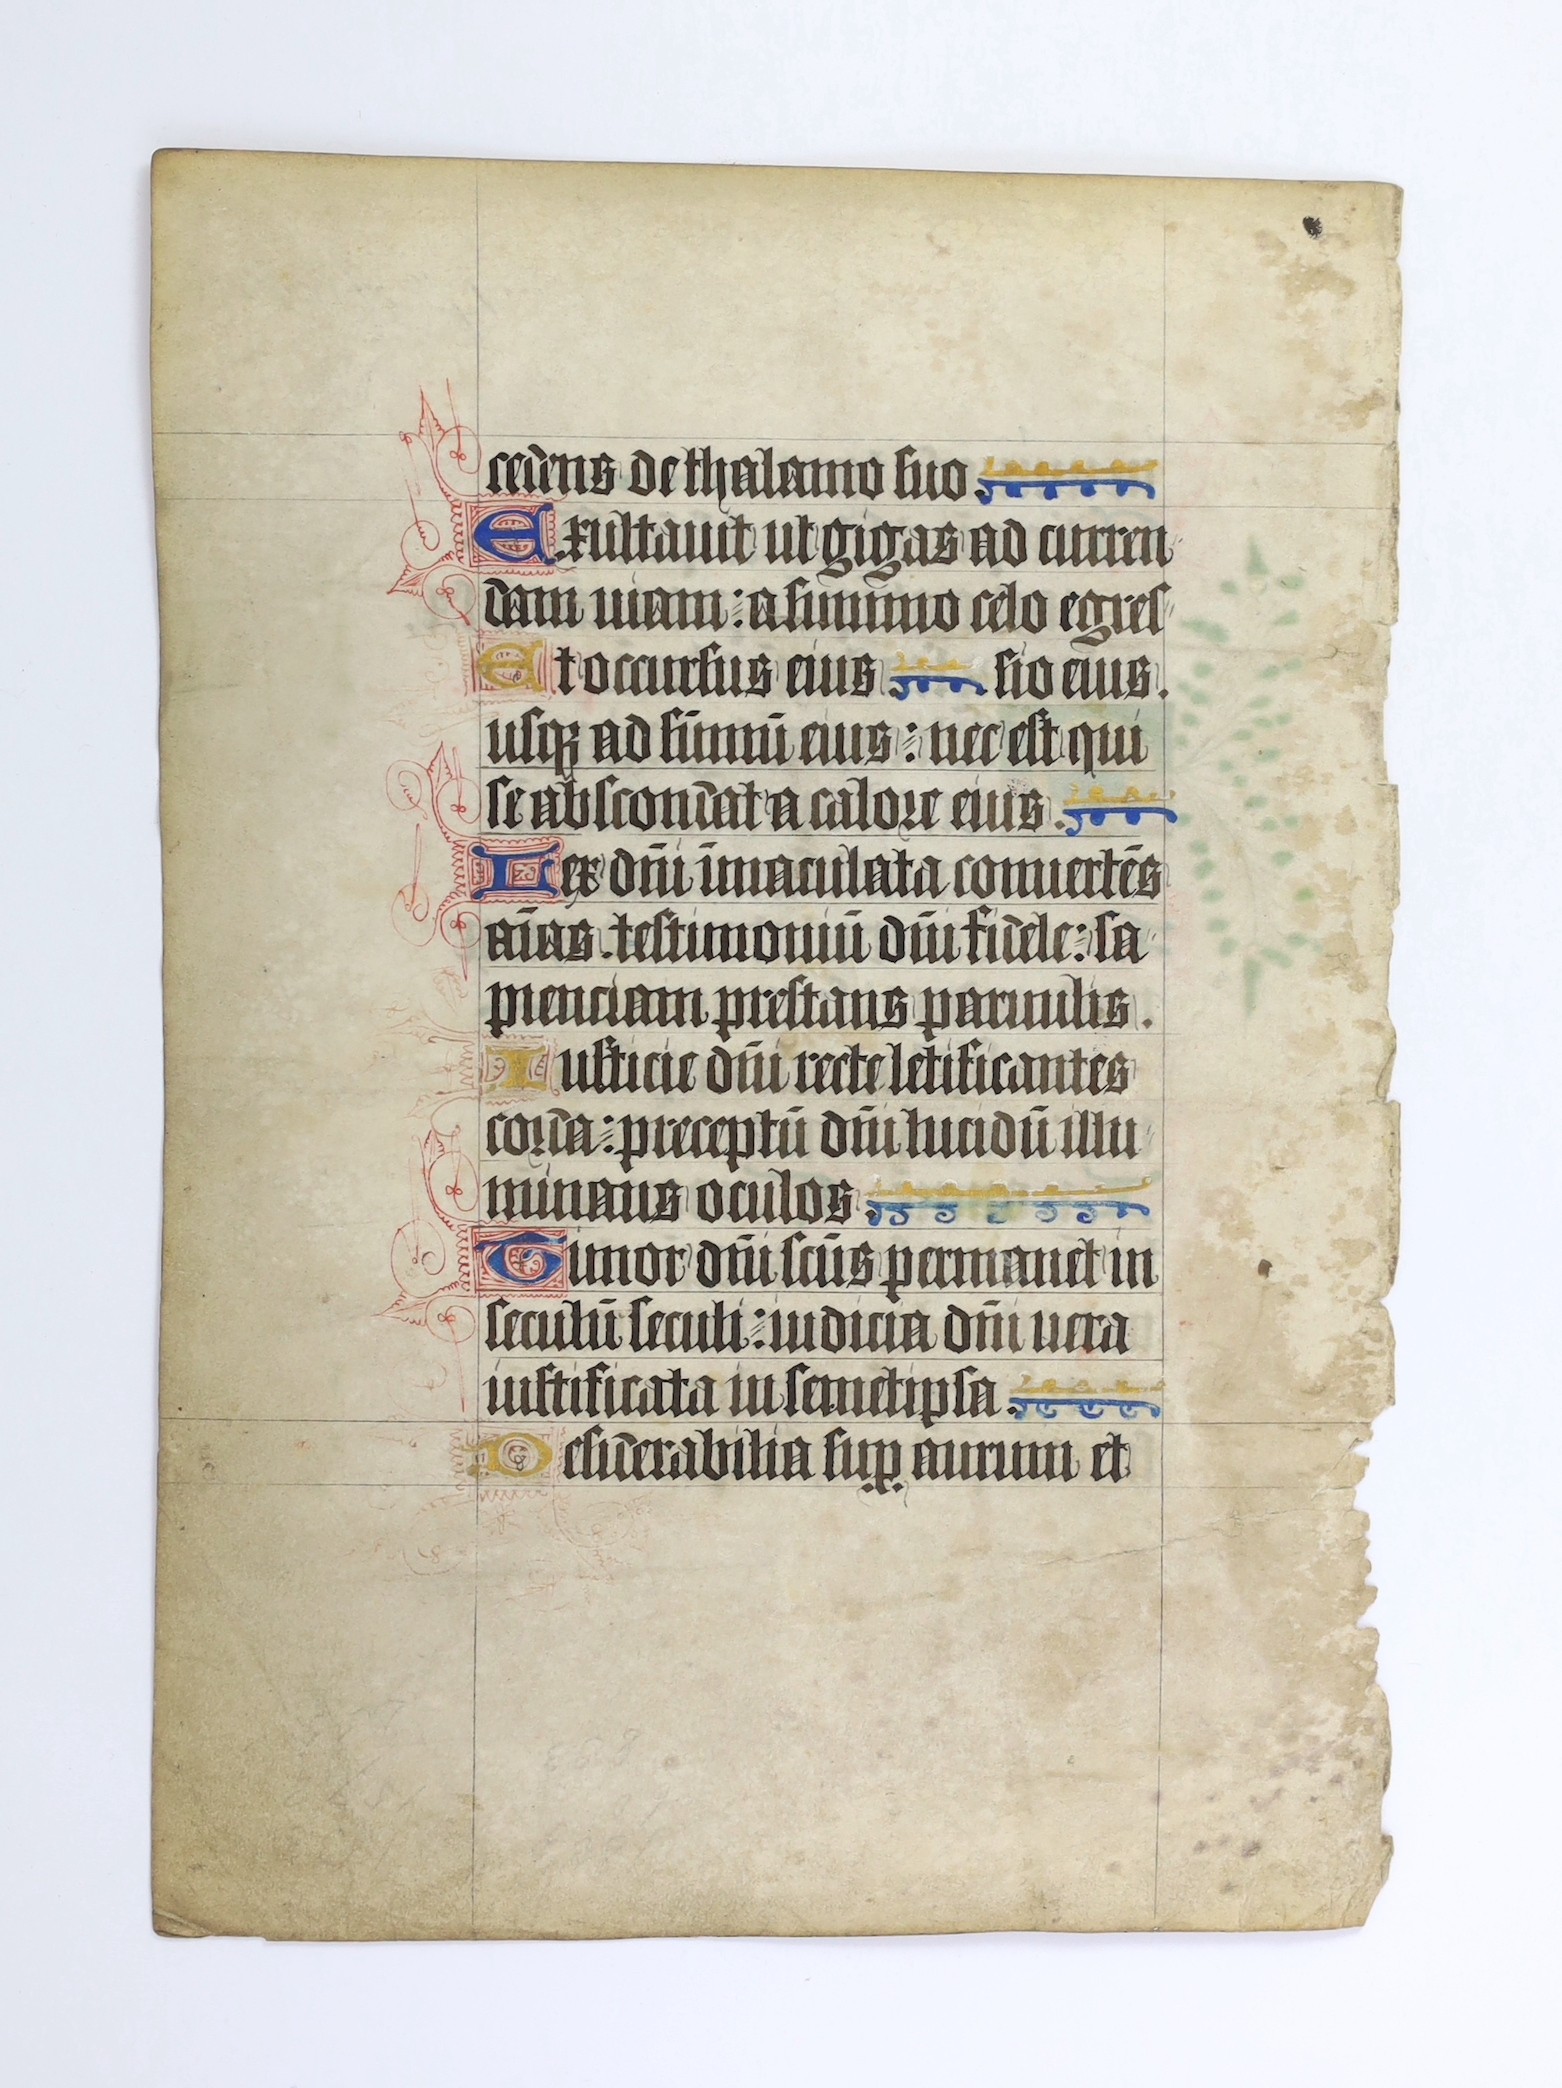 cedens de thalamo suo.
Exultauit ut gigas ad curren
dam uiam: a summo celo egres
Et occursus eius sio eius.
usqꝫ ad sūmū eius: nec est qui
se abscondat a calore eius.
Lex dn̄i īmaculata conuertēs
aīas. testimoniū dn̄i fidele: sa
pienciam prestans paruulis.
Iusticie dn̄i recte letificantes
corda: preceptū dn̄i lucidū illu
minans oculos.
Timor dn̄i scūs permanet in
seculū seculi: iudicia dn̄i uera
iustificata in semetipsa.
Desiderabilia suꝑ aurum et